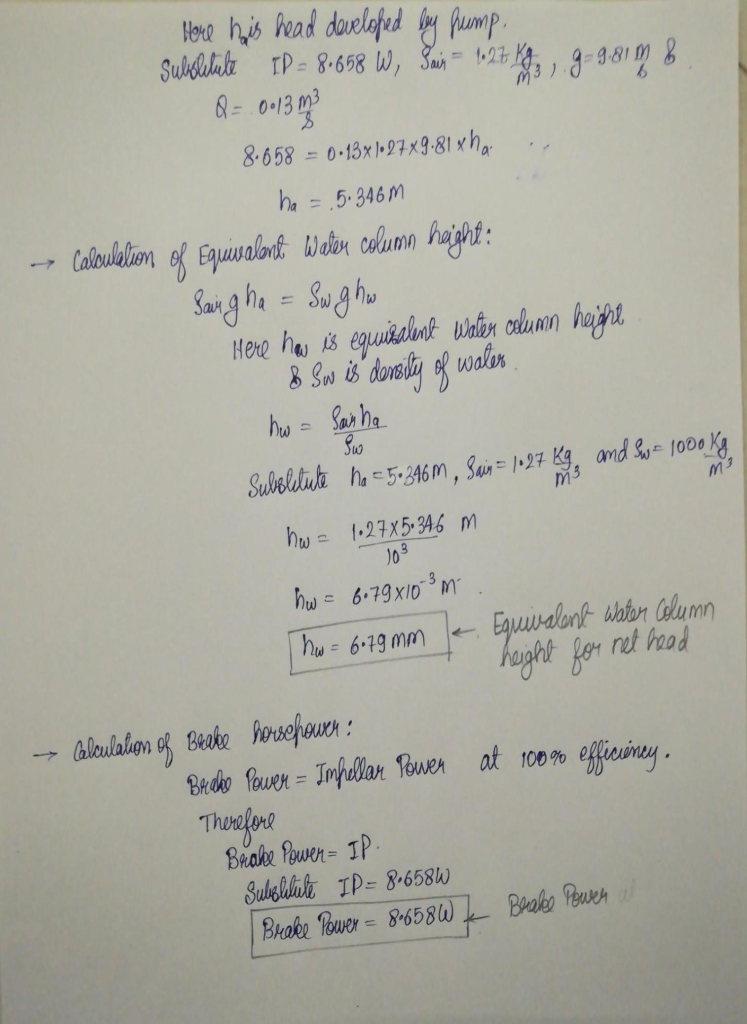 Here ha is head developed by pump.
Substitute IP = 8.658 W, ρair = 1.27 Kg/m³, g = 9.81 m/s &
Q = 0.13 m³/s
8.658 = 0.13×1.27×9.81×ha
ha = 5.346m
→ Calculation of Equivalent Water column height:
ρair g ha = ρw g hw
Here hw is equivalent water column height
& ρw is density of water.
hw = ρair ha / ρw
Substitute ha = 5.346m, ρair = 1.27 Kg/m³ and ρw = 1000 Kg/m³
hw = 1.27×5.346 / 10³ m
hw = 6.79×10⁻³ m
hw = 6.79mm ← Equivalent Water Column
height for net head
→ Calculation of Brake horsepower:
Brake Power = Impellar Power at 100% efficiency.
Therefore
Brake Power = IP.
Substitute IP = 8.658W
Brake Power = 8.658W ← Brake Power